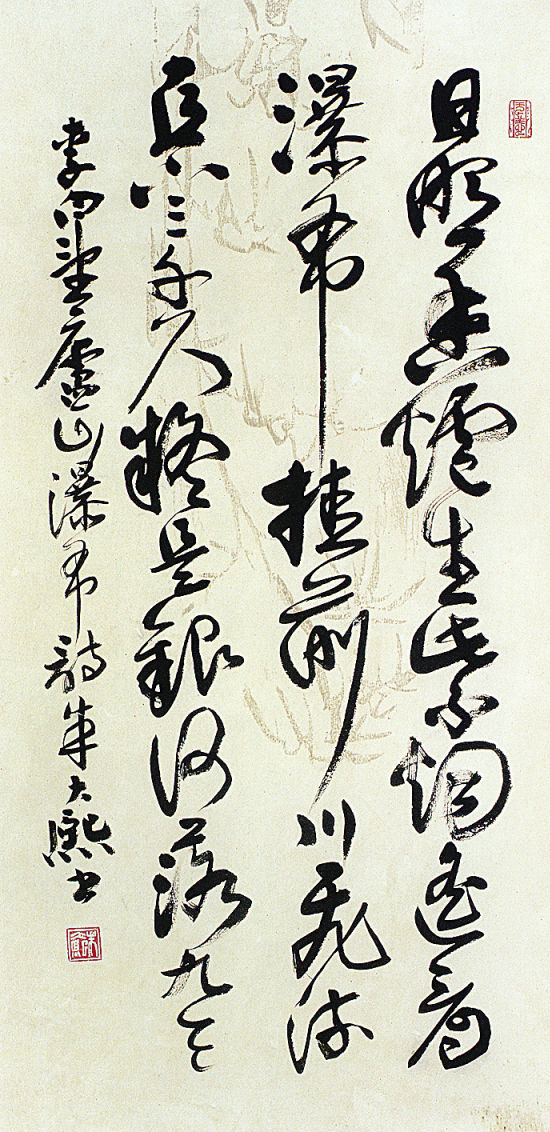 日照香爐生紫烟遙看
瀑布挂前川飛流
直下三千尺疑是銀河落九天
李白望廬山瀑布詩朱大熙書